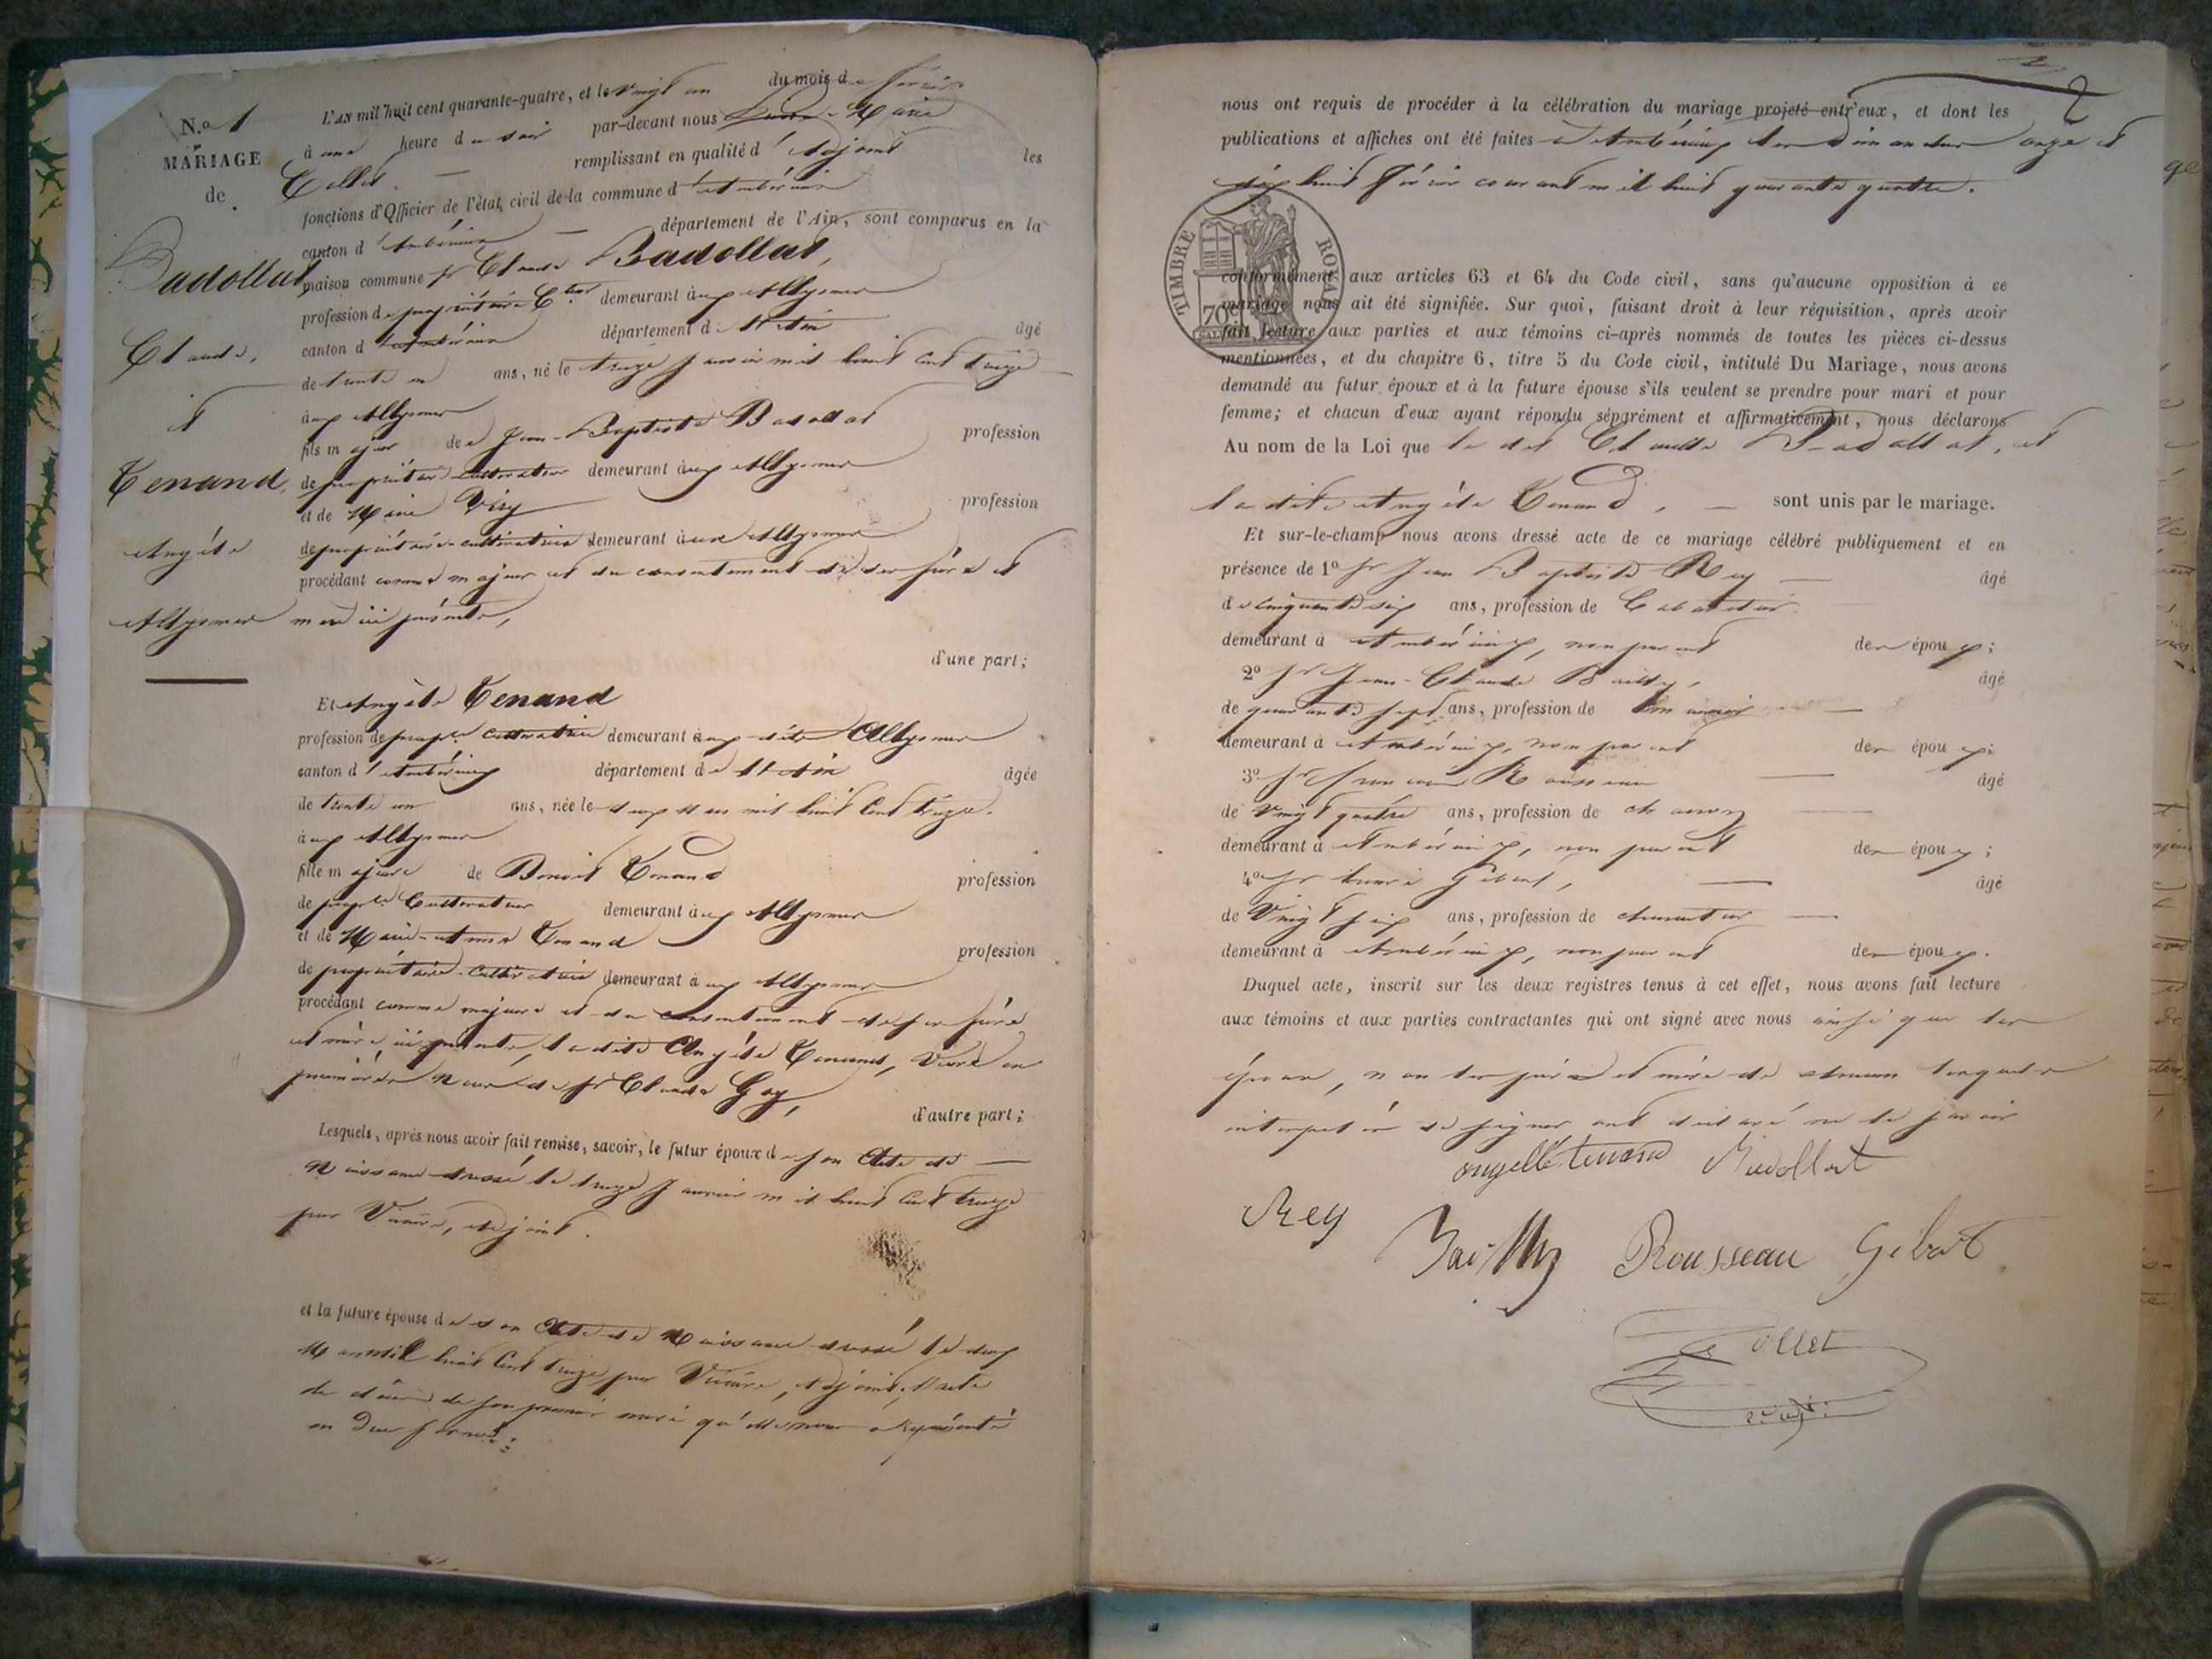 N.o 1
MARIAGE
de
Badollat,
Claude,
et
Tenand,
Angèle
Allymes
L'AN mil huit cent quarante-quatre, et le vingt un du mois de février
à une heure du soir par-devant nous Marie
Collet. remplissant en qualité d'adjoint les
fonctions d'Officier de l'état civil de la commune d'Ambérieux
canton d'Ambérieux département de l'Ain, sont comparus en la
maison commune Sr Claude Badollat,
profession de propriétaire Cteur demeurant aux Allymes
canton d'Ambérieux département de l'Ain âgé
de trente un ans, né le treize janvier mil huit cent treize
aux Allymes
fils majeur de Jean-Baptiste Badollat profession
de propriétaire cultivateur demeurant aux Allymes
et de Marie Viry profession
de propriétaire-cultivatrice demeurant aux Allymes
procédant comme majeur et du consentement de ses père et
mère ici présents,
d'une part;
Et Angèle Tenand
profession de proprre cultivatrice demeurant aux dits Allymes
canton d'Ambérieux département de l'Ain âgée
de trente un ans, née le deux mars mil huit cent treize.
aux Allymes
fille majeure de Benoit Tenand profession
de proprre Cultivateur demeurant aux Allymes
et de Marie-Anne Tenand profession
de propriétaire-cultivatrice demeurant aux Allymes
procédant comme majeure et du consentement de ses père
et mère, ici présents, la dite Angèle Tenand, veuve en
premières noces de Sr Claude Goy,
d'autre part;
Lesquels, après nous avoir fait remise, savoir, le futur époux de son Acte de
Naissance dressé le treize janvier mil huit cent treize
par adjoint.
et la future épouse de son Acte de Naissance dressé le deux
Mars mil huit cent treize par adjoint, l'acte
de décès de son premier mari qu'elle nous a représenté
en due forme;
2
nous ont requis de procéder à la célébration du mariage projeté entr'eux, et dont les
publications et affiches ont été faites à Ambérieux les dimanches onze et
dix huit février courant mil huit quarante quatre.
TIMBRE ROYAL
70c
conformément aux articles 63 et 64 du Code civil, sans qu'aucune opposition à ce
mariage nous ait été signifiée. Sur quoi, faisant droit à leur réquisition, après avoir
fait lecture aux parties et aux témoins ci-après nommés de toutes les pièces ci-dessus
mentionnées, et du chapitre 6, titre 5 du Code civil, intitulé Du Mariage, nous avons
demandé au futur époux et à la future épouse s'ils veulent se prendre pour mari et pour
femme; et chacun d'eux ayant répondu séparément et affirmativement, nous déclarons
Au nom de la Loi que le dit Claude Badollat, et
la dite Angèle Tenand, sont unis par le mariage.
Et sur-le-champ nous avons dressé acte de ce mariage célébré publiquement et en
présence de 1o Sr Jean Baptiste Rey âgé
de cinquante six ans, profession de Cabaretier
demeurant à Ambérieux, non parent des époux;
2o Sr Jean-Claude Bailly, âgé
de quarante sept ans, profession de
demeurant à Ambérieux, non parent des époux;
3o Sr François Rousseau âgé
de vingt quatre ans, profession de
demeurant à Ambérieux, non parent des époux;
4o Sr Gibert, âgé
de vingt six ans, profession de charpentier
demeurant à Ambérieux, non parent des époux.
Duquel acte, inscrit sur les deux registres tenus à cet effet, nous avons fait lecture
aux témoins et aux parties contractantes qui ont signé avec nous ainsi que les
époux, non les père et mère de chacun lesquels
interpellés de signer ont déclaré ne le savoir
angelle tenand Badollat
Rey Bailly Rousseau Gibert
Collet
adjt.